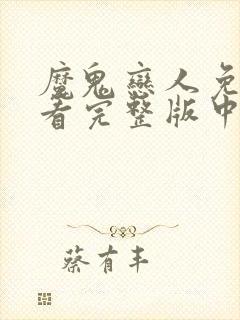 魔鬼戀人免
看完整版中
蔡有丰